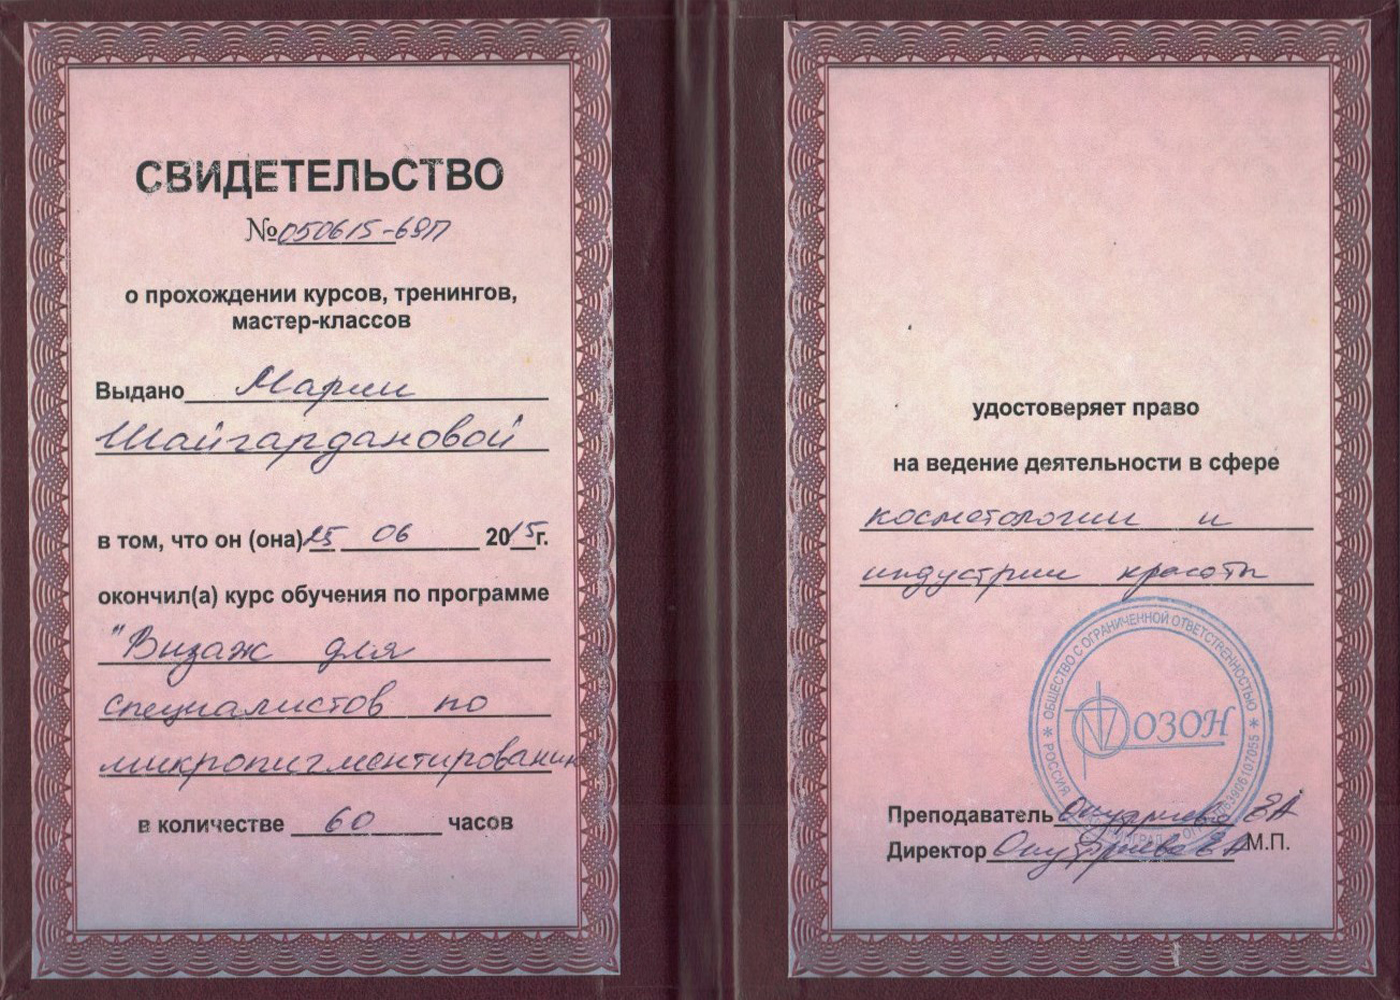 СВИДЕТЕЛЬСТВО
№050615-69П
о прохождении курсов, тренингов,
мастер-классов
Выдано Марии
Шайгардановой
в том, что он (она) 25 06 2015г.
окончил(а) курс обучения по программе
"Визаж для
специалистов по
микропигментированию
в количестве 60 часов
удостоверяет право
на ведение деятельности в сфере
косметологии и
индустрии красоты
ОБЩЕСТВО С ОГРАНИЧЕННОЙ ОТВЕТСТВЕННОСТЬЮ
РОССИЯ
ОЗОН
Преподаватель ЕА
Директор ЕА М.П.